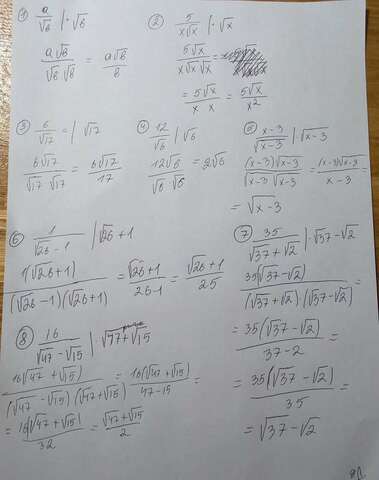 ① a/√b | · √b
a√b/√b√b = a√b/b
② 5/x√x | · √x
5√x/x√x√x =
= 5√x/x x = 5√x/x²
③ 6/√17 = | √17
6√17/√17 √17 = 6√17/17
④ 12/√6 | √6
12√6/√6 √6 = 2√6
⑤ x-3/√x-3 | √x-3
(x-3)√x-3/√x-3 √x-3 = (x-3)√x-3/x-3 =
= √x-3
⑥ 1/√26 - 1 | √26 + 1
1(√26+1)/(√26-1)(√26+1) = √26+1/26-1 = √26+1/25
⑦ 35/√37+√2 | · √37-√2
35(√37-√2)/(√37+√2)(√37-√2) =
= 35(√37-√2)/37-2 =
= 35(√37-√2)/35 =
= √37-√2
⑧ 16/√47-√15 | · √47+√15
16(√47+√15)/(√47-√15)(√47+√15) = 16(√47+√15)/47-15 =
= 16(√47+√15)/32 = √47+√15/2